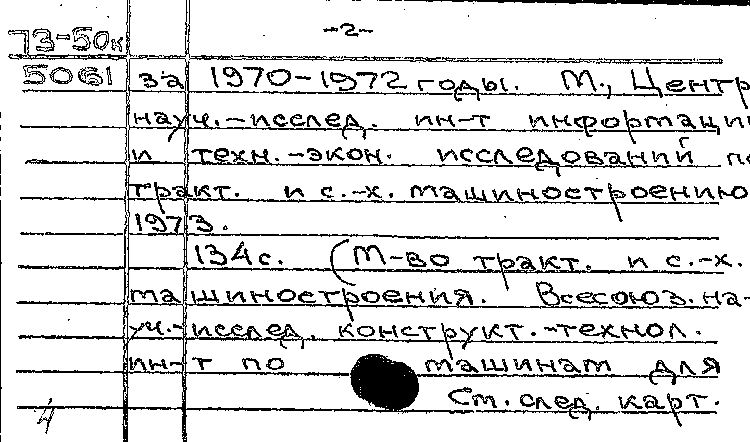 -2-
73-50к
5061 за 1970-1972 годы. М., Центр
науч.-исслед. ин-т информации
и техн.-экон. исследований по
тракт. и с.-х. машиностроению
1973.
134с. (М-во тракт. и с.-х.
машиностроения. Всесоюз. на-
уч.-исслед. конструкт.-технол.
ин-т по машинам для
См. след. карт.
4